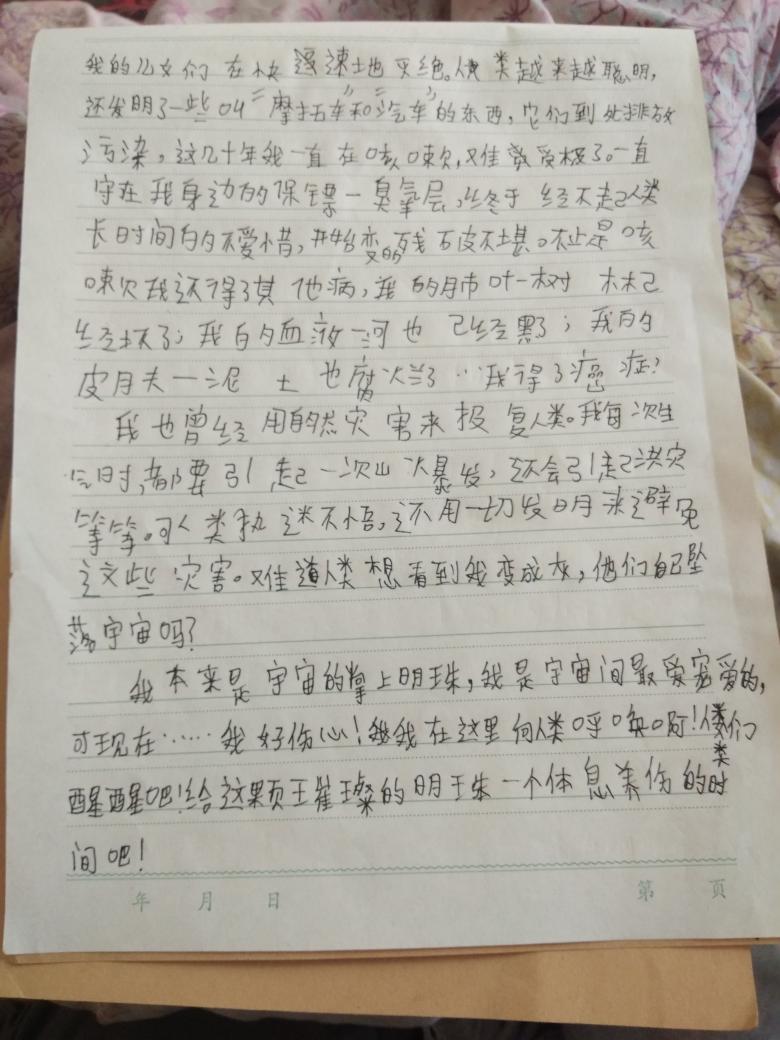 我的儿女们在快速地灭绝。人类越来越聪明，
还发明了一些叫“摩托车”和“汽车”的东西，它们到处排放
污染，这几十年我一直在咳嗽，难受极了。一直
守在我身边的保镖一臭氧层，终于经不起人类
长时间的不爱惜，开始变的残破不堪。不止是咳
嗽我还得了其他病，我的肺叶一树林已
经坏了；我的血液一河也已经黑了；我的
皮肤一泥土也腐烂了…我得了癌症？
我也曾经用自然灾害来报复人类。我每次生
气时，都要引起一次火山爆发，还会引起洪灾
等等。可人类执迷不悟，还用一切发明来避免
这些灾害。难道人类想看到我变成灰，他们自己坠
落宇宙吗？
我本来是宇宙的掌上明珠，我是宇宙间最受宠爱的，
可现在……我好伤心！我在这里向人类呼唤啊！人类们
醒醒吧！给这颗璀璨的明珠一个休息养伤的时
间吧！
年 月 日 第 页